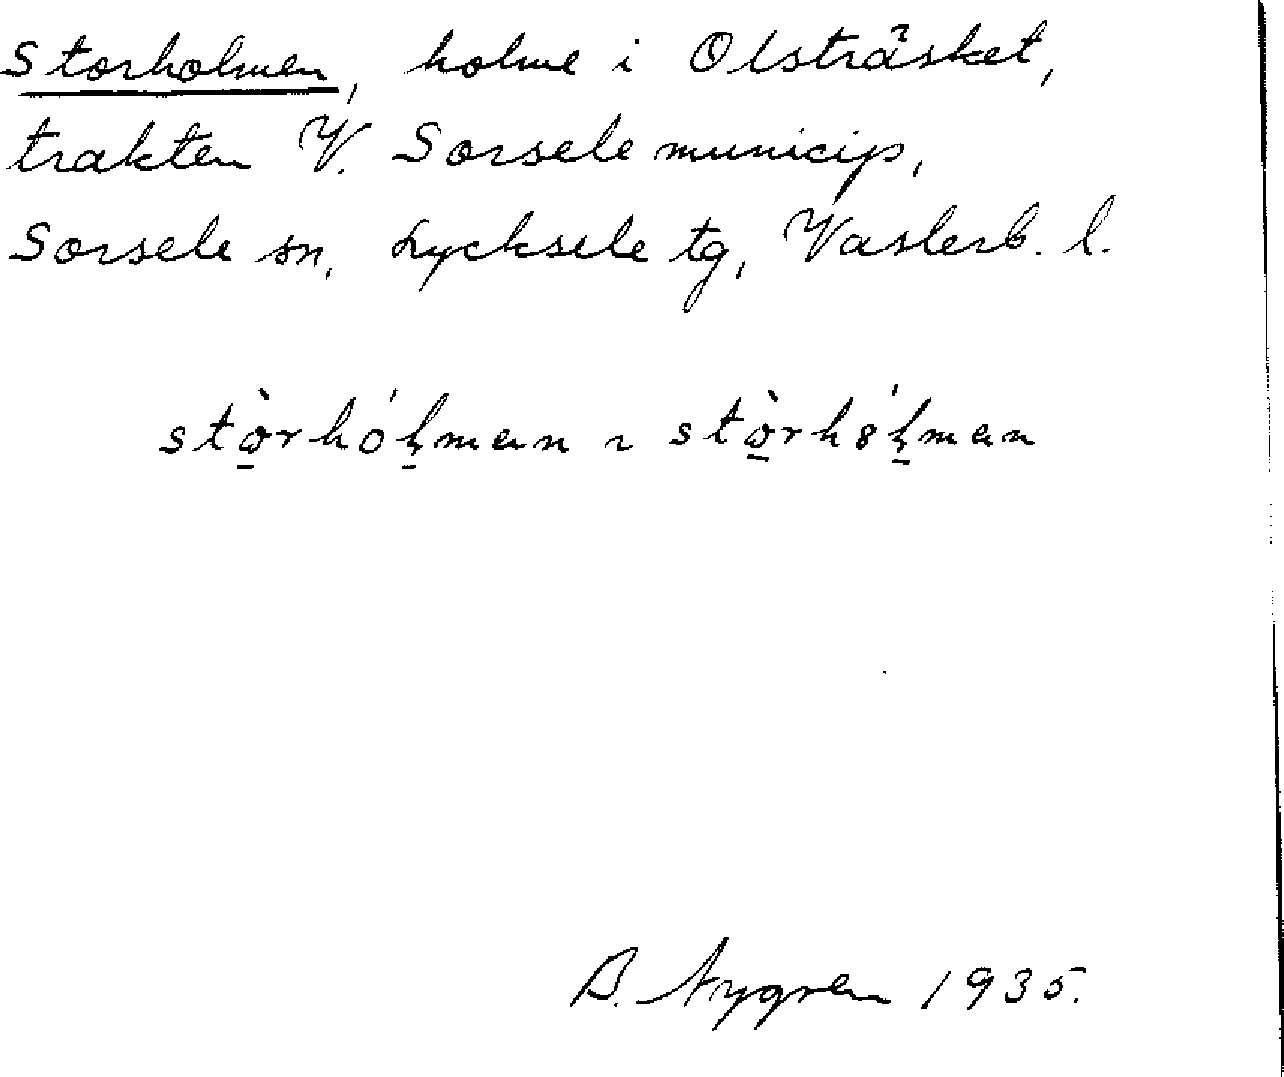 Storholmen, holme i Olsträsket,
trakten V. Sorsele municip,
Sorsele sn, Lycksele tg, Västerb. l.
stò̠rhól̠man ~ stò̠rh8́l̠man
B. Nygren 1935.